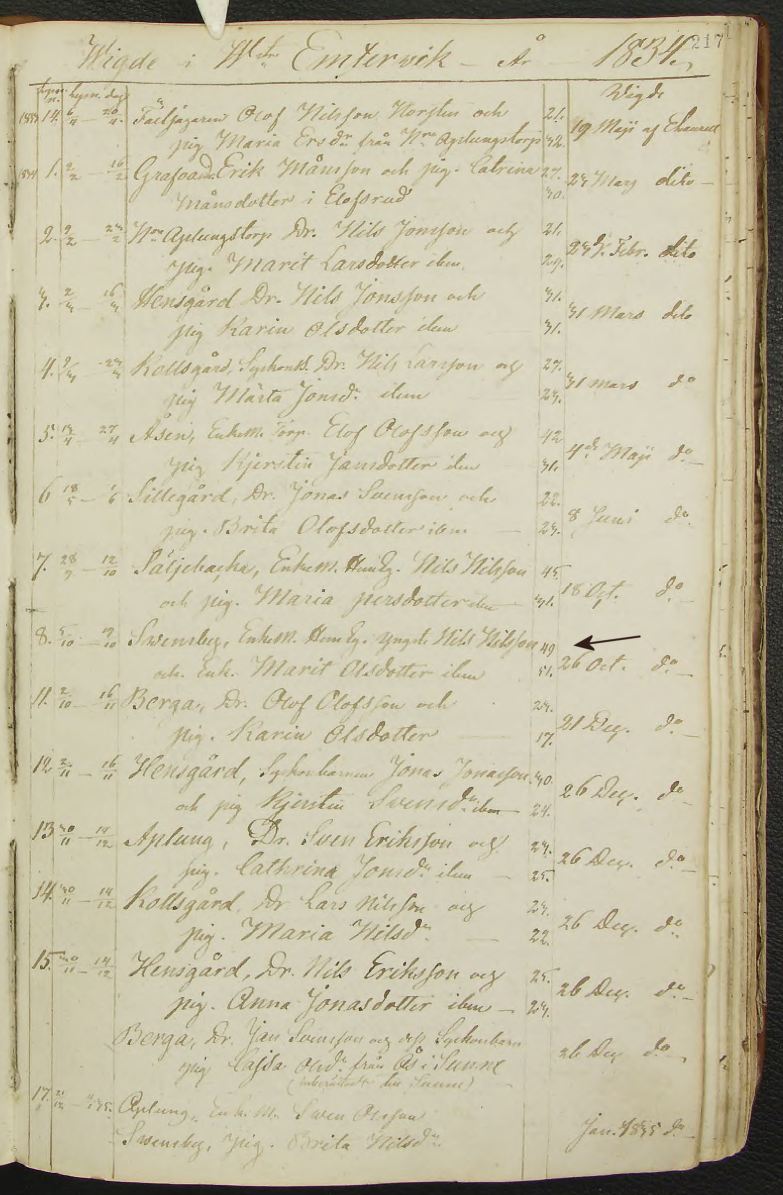 217
Wigde i Wstr Emtervik - År 1834.
Wigde
1833 14. 6/4 - 20/4 Fältjägaren Olof Nilsson Norsten och 21.
pig Maria Ersdr från Nrn Aplungstorp 32. 19 Maji af
1834 1. 2/2 - 16/2 Erik Månsson och pig. Catrina 27.
Månsdotter i Elofsrud 30. 23 Mars dito
2. 9/2 - 23/2 Nrn Aplungstorp Dr. Nils Jonsson och 21.
pig. Marit Larsdotter ibm. 29. Febr. dito
3. 2/3 - 16/3 Hensgård Dr. Nils Jonsson och 31.
pig Karin Olsdotter ibm 31. 31 Mars dito
4. 9/3 - 23/3 Kollsgård, Dr. Nils Larsson och 27.
pig Märta Jonsdr ibm 23. 31 Mars do
5. 13/4 - 27/4 Åsen, Enkem. Torp. Elof Olofsson och 42
pig Kjerstin Jansdotter ibm 31. 4de Maji do
6 18/5 - 1/6 Sillegård, Dr. Jonas Svensson och 22.
pig. Brita Olofsdotter ibm 23. 8 Juni do
7. 28/9 - 12/10 Säljebacka, Enkem. Hem Eg. Nils Nilsson 45.
och pig. Maria persdotter ibm 31. 18 Oct. do
8. 5/10 - 19/10 Swensby, Enkem. Hem Eg. yngre Nils Nilsson 49
och Enk. Marit Olsdotter ibm 51. 26 Oct. do
11. 2/10 - 16/11 Berga, Dr. Olof Olofsson och 23.
pig. Karin Olsdotter 17. 21 Dec. do
12 2/11 - 16/11 Hensgård, Syskonbarnen Jonas Jonasson 30.
och pig Kjerstin Svensdr ibm 24. 26 Dec. do
13 30/11 - 14/12 Aplung, Dr. Sven Eriksson och 23.
pig. Cathrina Jonsdr ibm 25. 26 Dec. do
14. 30/11 - 14/12 Kollsgård, Dr Lars Nilsson och 23.
pig. Maria Nilsdr 22. 26 Dec. do
15. 30/11 - 14/12 Hensgård, Dr. Nils Eriksson och 25.
pig. Anna Jonasdotter ibm 23. 26 Dec. do
Berga, Dr. Jan Svensson och dess Syskonbarn
pig Cajsa Olsdr från Ås i Sunne 26 Dec do
17. Aplung, Enk. M. Swen Olsson
Swensby, pig. Brita Nilsdr Jan. 1835 do